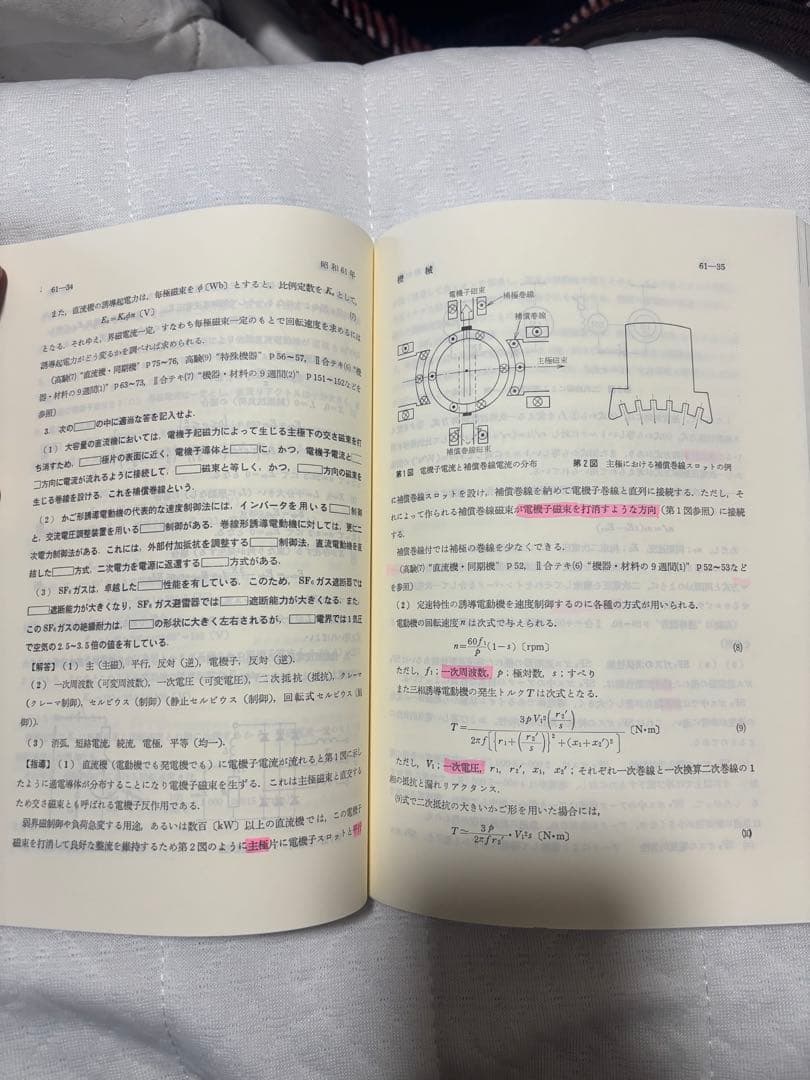 61—34
昭和61年
また，直流機の誘導起電力は，毎極磁束をφ〔Wb〕とすると，比例定数をKₑとして，
Eₐ=Kₑφn〔V〕 (7)
となる．それゆえ，界磁電流一定，すなわち毎極磁束一定のもとで回転速度を求めるには
誘導起電力がどう変るかを調べれば求められる．
（高験(7)“直流機・同期機”p 75～76，高験(9)“特殊機器”p 56～57，Ⅱ合テキ(6)“機
器・材料の9週間(1)”p 63～73，Ⅱ合テキ(7)“機器・材料の9週間(2)”p 151～152などを
参照）
3．次の□の中に適当な答を記入せよ．
（1）大容量の直流機においては，電機子起磁力によって生じる主極下の交さ磁束を打
ち消すため，□極片の表面に近く，電機子導体と□に，かつ，電機子電流と□
□方向に電流が流れるように接続して，□磁束と等しく，かつ，□方向の磁束を
生じる巻線を設ける．これを補償巻線という．
（2）かご形誘導電動機の代表的な速度制御法には，インバータを用いる□制御
と，交流電圧調整装置を用いる□制御がある．巻線形誘導電動機に対しては，更に二
次電力制御法がある．これには，外部付加抵抗を調整する□制御法，直流電動機を直
結した□方式，二次電力を電源に返還する□方式がある．
（3）SF₆ガスは，卓越した□性能を有している．このため，SF₆ガス遮断器では
□遮断能力が大きくなり，SF₆ガス避雷器では□遮断能力が大きくなる．また，
このSF₆ガスの絶縁耐力は，□の形状に大きく左右されるが，□電界では1気圧
で空気の2.5～3.5倍の値を有している．
【解答】（1）主（主磁），平行，反対（逆），電機子，反対（逆）．
（2）一次周波数（可変周波数），一次電圧（可変電圧），二次抵抗（抵抗），クレーマ
（クレーマ制御），セルビウス（制御）（静止セルビウス（制御），回転式セルビウス（制
御））．
（3）消弧，短絡電流，続流，電極，平等（均一）．
【指導】（1）直流機（電動機でも発電機でも）に電機子電流が流れると第1図に示し
たように通電導体が分布することになり電機子磁束を生ずる．これは主極磁束と直交する
ため交さ磁束とも呼ばれる電機子反作用である．
弱界磁制御や負荷急変する用途，あるいは数百〔kW〕以上の直流機では，この電機子
磁束を打消して良好な整流を維持するため第2図のように主極片に電機子スロットと平行
機 械
61—35
電機子磁束
補極巻線
補償巻線
主極磁束
補償巻線磁束
第1図 電機子電流と補償巻線電流の分布
第2図 主極における補償巻線スロットの例
に補償巻線スロットを設け，補償巻線を納めて電機子巻線と直列に接続する．ただし，そ
れによって作られる補償巻線磁束が電機子磁束を打消すような方向（第1図参照）に接続
する．
補償巻線付では補極の巻線を少なくできる．
（高験(7)“直流機・同期機”p 52，Ⅱ合テキ(6)“機器・材料の9週間(1)”p 52～53など
を参照）
（2）定速特性の誘導電動機を速度制御するのに各種の方式が用いられる．
電動機の回転速度nは次式で与えられる．
n=60f₁/p(1−s)〔rpm〕 (8)
ただし，f₁；一次周波数，p；極対数，s；すべり
また三相誘導電動機の発生トルクTは次式となる．
T=3pV₁²(r₂′/s)/2πf[{r₁+(r₂′/s)}²+(x₁+x₂′)²]〔N•m〕 (9)
ただし，V₁；一次電圧，r₁，r₂′，x₁，x₂′；それぞれ一次巻線と一次換算二次巻線の1
相の抵抗と漏れリアクタンス．
(9)式で二次抵抗の大きいかご形を用いた場合には，
T≃3p/2πfr₂′•V₁²s〔N•m〕 (10)